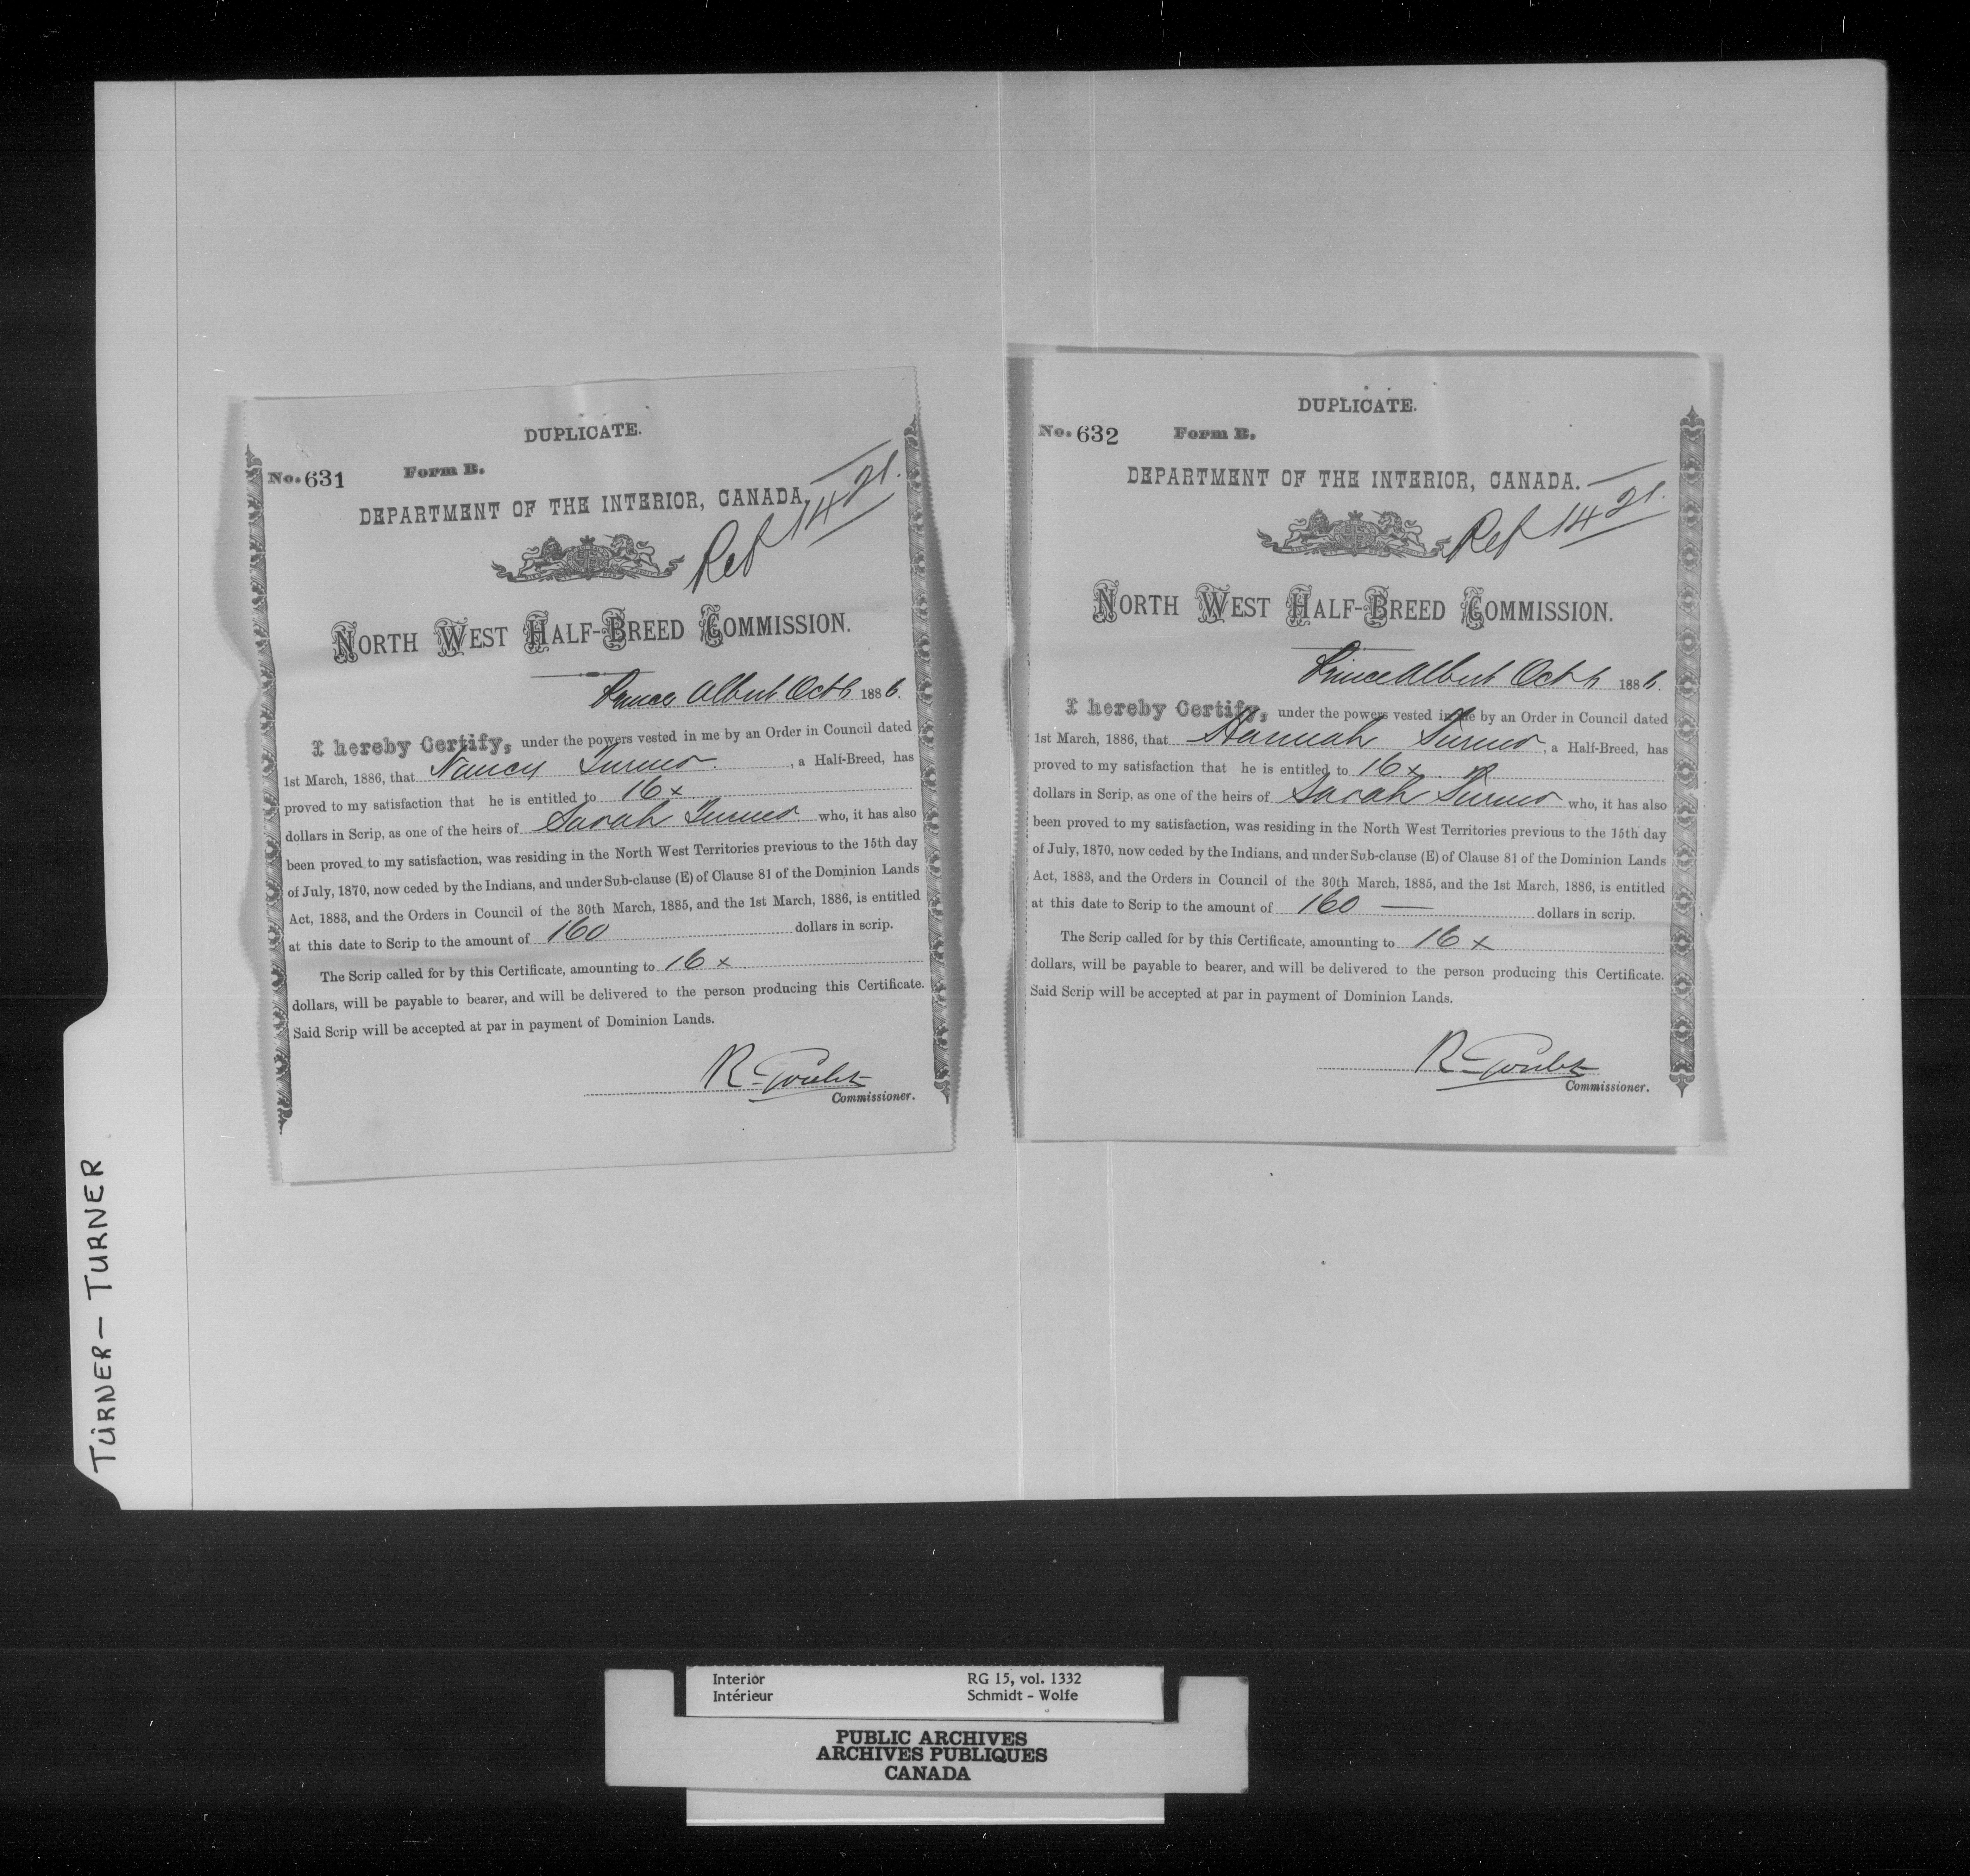 DUPLICATE.
No. 631 Form B.
DEPARTMENT OF THE INTERIOR, CANADA.
Ref 1421.
NORTH WEST HALF-BREED COMMISSION.
Prince Albert Oct 6 1886.
I hereby Certify, under the powers vested in me by an Order in Council dated
1st March, 1886, that Nancy Turner, a Half-Breed, has
proved to my satisfaction that he is entitled to 16 x
dollars in Scrip, as one of the heirs of Sarah Turner who, it has also
been proved to my satisfaction, was residing in the North West Territories previous to the 15th day
of July, 1870, now ceded by the Indians, and under Sub-clause (E) of Clause 81 of the Dominion Lands
Act, 1883, and the Orders in Council of the 30th March, 1885, and the 1st March, 1886, is entitled
at this date to Scrip to the amount of 160 dollars in scrip.
The Scrip called for by this Certificate, amounting to 16 x
dollars, will be payable to bearer, and will be delivered to the person producing this Certificate.
Said Scrip will be accepted at par in payment of Dominion Lands.
R. Goulet
Commissioner.
DUPLICATE.
No. 632 Form B.
DEPARTMENT OF THE INTERIOR, CANADA.
Ref 1421.
NORTH WEST HALF-BREED COMMISSION.
Prince Albert Oct 6 1886.
I hereby Certify, under the powers vested in me by an Order in Council dated
1st March, 1886, that Hannah Turner, a Half-Breed, has
proved to my satisfaction that he is entitled to 16 x
dollars in Scrip, as one of the heirs of Sarah Turner who, it has also
been proved to my satisfaction, was residing in the North West Territories previous to the 15th day
of July, 1870, now ceded by the Indians, and under Sub-clause (E) of Clause 81 of the Dominion Lands
Act, 1883, and the Orders in Council of the 30th March, 1885, and the 1st March, 1886, is entitled
at this date to Scrip to the amount of 160 — dollars in scrip.
The Scrip called for by this Certificate, amounting to 16 x
dollars, will be payable to bearer, and will be delivered to the person producing this Certificate.
Said Scrip will be accepted at par in payment of Dominion Lands.
R. Goulet
Commissioner.
TURNER — TURNER
Interior RG 15, vol. 1332
Intérieur Schmidt - Wolfe
PUBLIC ARCHIVES
ARCHIVES PUBLIQUES
CANADA